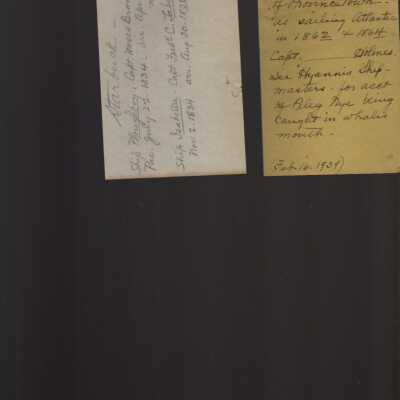 Starbuck —
Ship Capt. Moses Brown
Pac. July 22 1834 - arr. Apr
Ship Isabella - Capt Fred C.
Nov 2. 1834 arr. Aug 20. 183
of Provincetown -
as sailing Atlantic
in 1862 & 1864.
Capt. Holmes.
See "Hyannis Ship-
masters - for acct
of Pliny Nye being
caught in whale's
mouth -
Feb. 16. 1939)